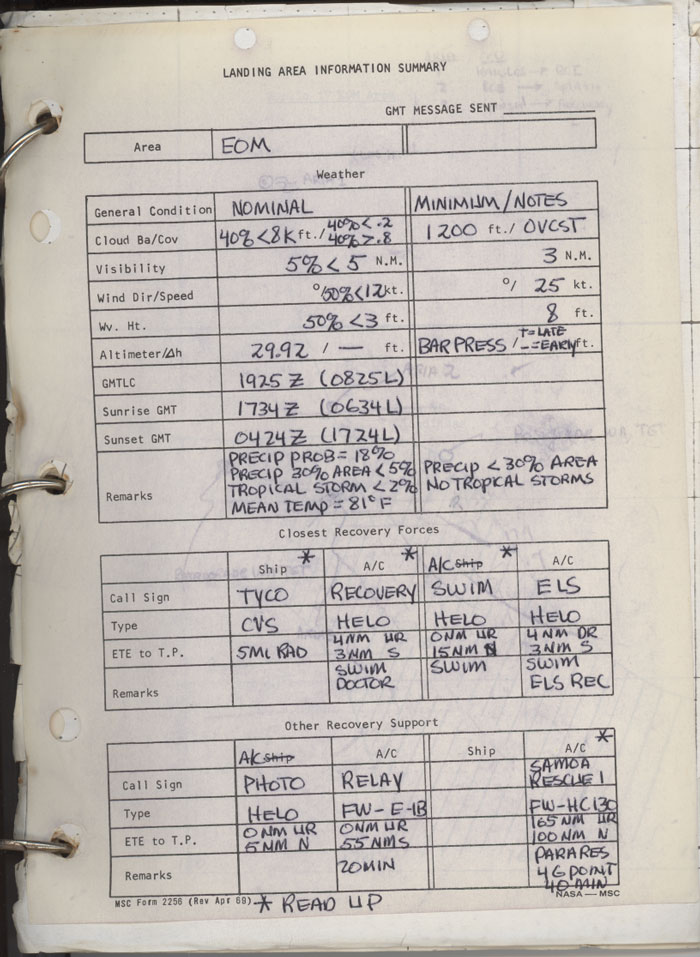 LANDING AREA INFORMATION SUMMARY
GMT MESSAGE SENT
Area EOM
Weather
General Condition NOMINAL MINIMUM/NOTES
Cloud Ba/Cov 40%<8K ft./ 40%<.2 40%>.8 1200 ft./ OVCST
Visibility 5%<5 N.M. 3 N.M.
Wind Dir/Speed °/50%<12kt. °/ 25 kt.
Wv. Ht. 50%<3 ft. 8 ft.
Altimeter/Δh 29.92 / — ft. BAR PRESS / +=LATE -=EARLY ft.
GMTLC 1925 Z (0825L)
Sunrise GMT 1734 Z (0634L)
Sunset GMT 0424 Z (1724L)
Remarks PRECIP PROB = 18%
PRECIP 30% AREA < 5% PRECIP < 30% AREA
TROPICAL STORM < 2% NO TROPICAL STORMS
MEAN TEMP = 81°F
Closest Recovery Forces
Ship * A/C * A/C Ship * A/C
Call Sign TYCO RECOVERY SWIM ELS
Type CVS HELO HELO HELO
ETE to T.P. 5MI RAD 4NM UR 3NM S 0NM UR 15NM N 4NM DR 3NM S
Remarks SWIM DOCTOR SWIM SWIM ELS REC
Other Recovery Support
A/C Ship A/C Ship A/C *
Call Sign PHOTO RELAY SAMOA RESCUE 1
Type HELO FW-E-1B FW-HC130
ETE to T.P. 0NM UR 5NM N 0NM UR 55NMS 165NM UR 100NM N
Remarks 20MIN PARARES 4G POINT 40 MIN
MSC Form 2256 (Rev Apr 69) * READ UP NASA — MSC